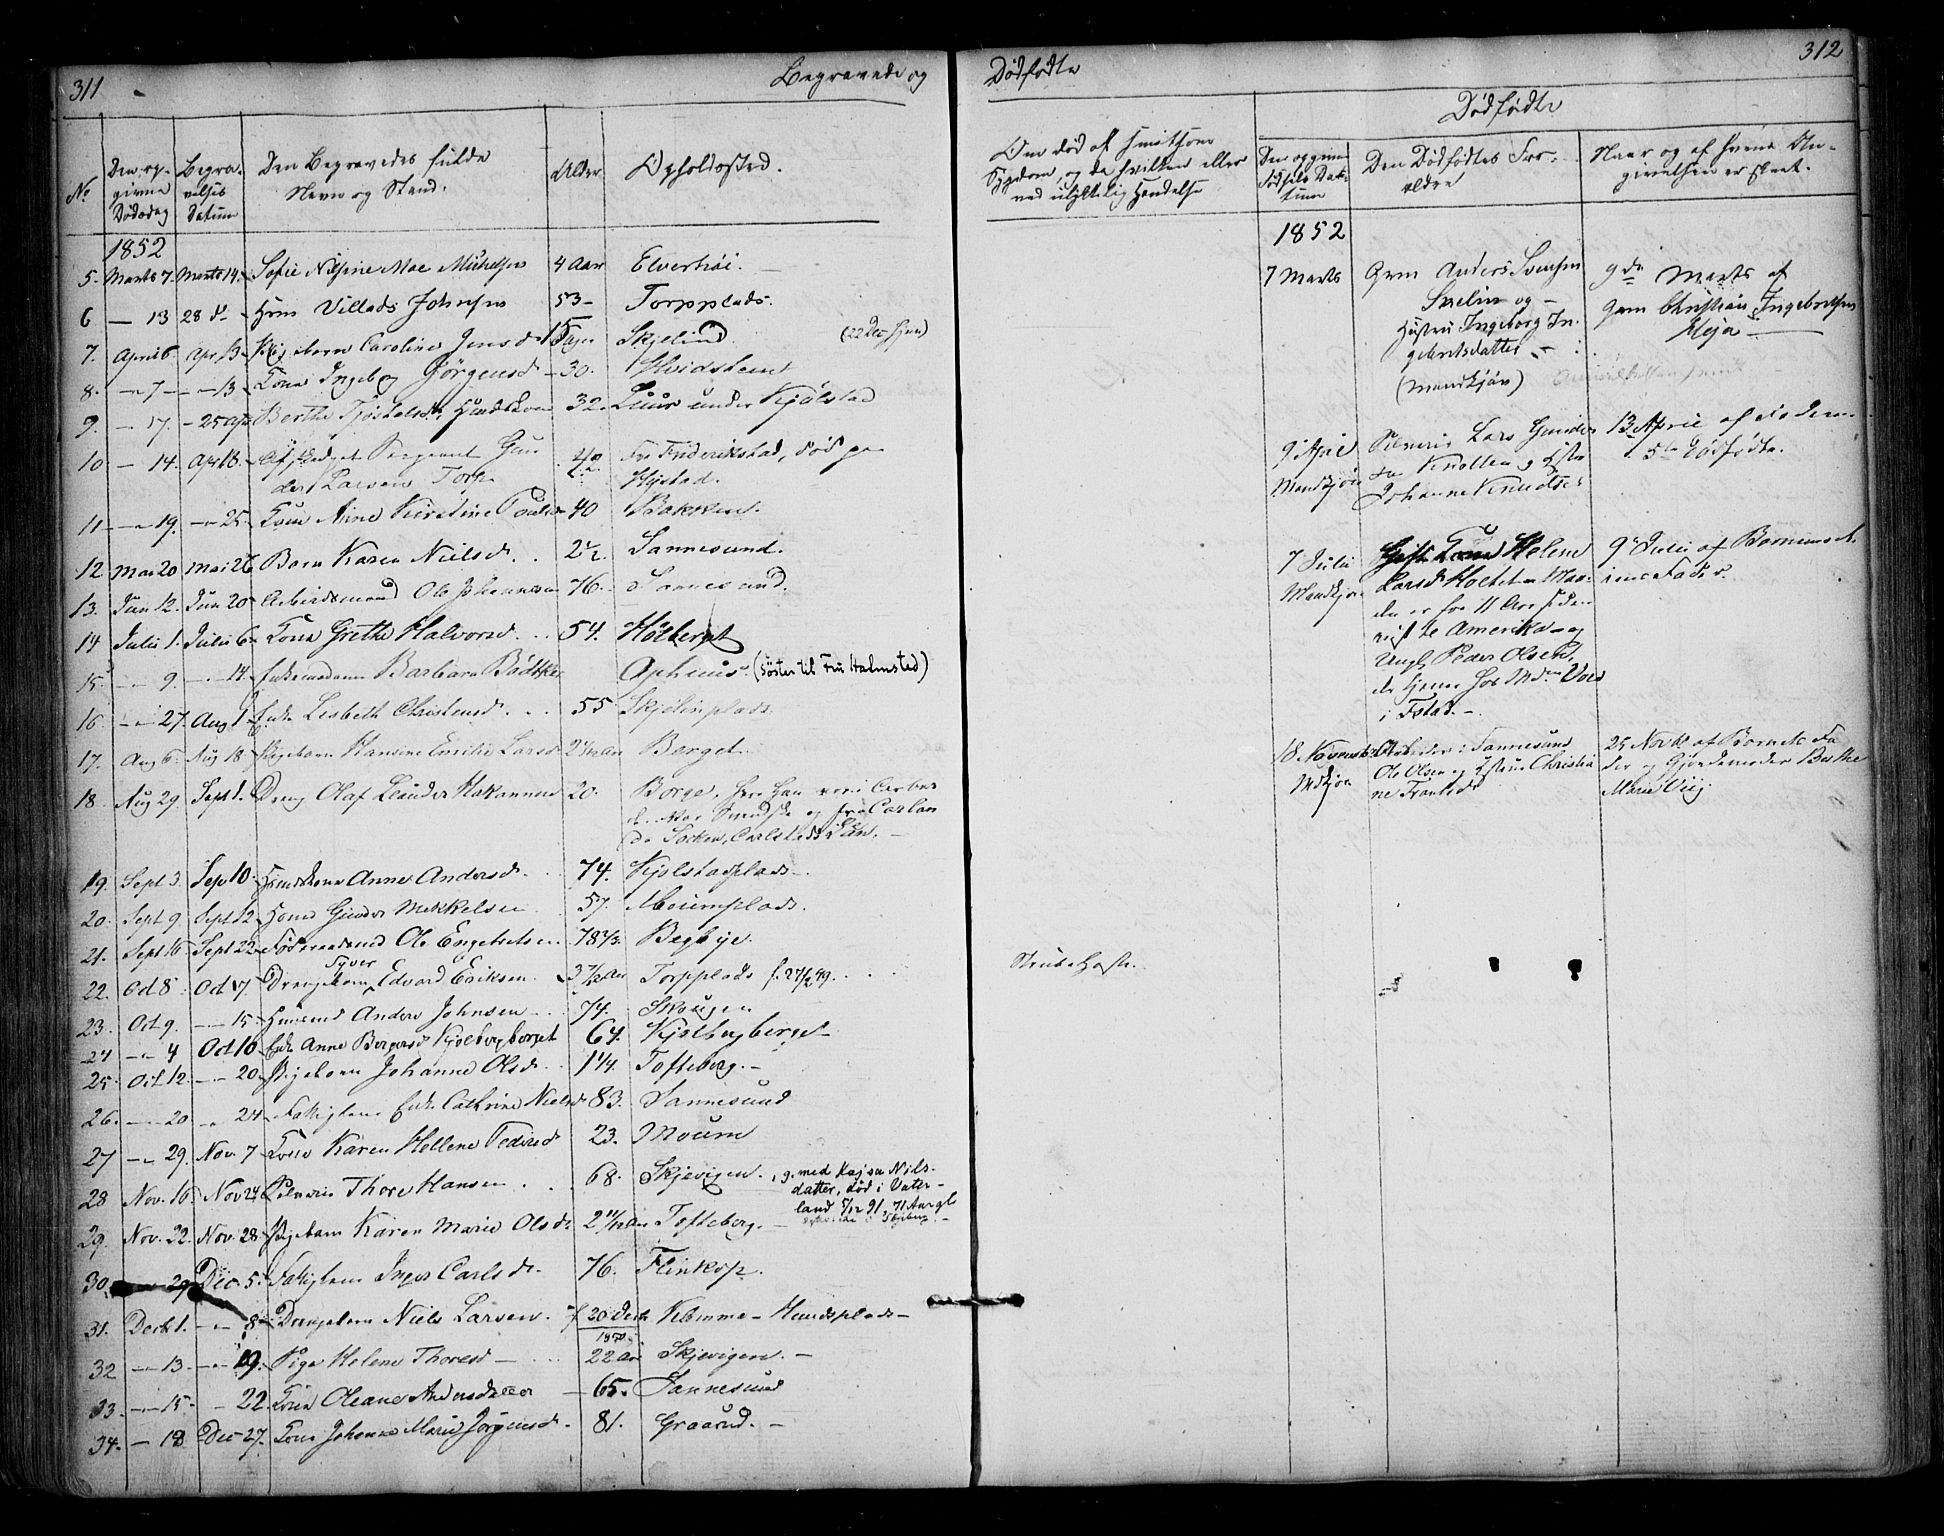 311
Begravede og
No
Den op-
givne
Dødsdag
Begra-
velses
Datum
Den Begravedes fulde
Navn og Stand.
Alder
Opholdssted.
1852
5. Marts 7. Marts 14. Sofie Nilsine Moe Michelsen 4 Aar Elverhøi.
6 — 13 28 d. Huusm Villads Johnsen 53 — Torpplads.
7. April 6. Apr. 13 Pigebarn Caroline Jensd. 15 Dage Skjelind. (22 Dec hjem)
8. — 7 — — 13 Kone Ingeb. Jørgensd — 30. Hvidsteen
9. — 17. — 25 Apr Berthe 32. under Kjølstad
10 — 14. Apr 18. Sergeant Gun
der Larsen Torp. Fra Frideriksstad, død paa
11 — 19. — 25. Kone Anne Kirstine 40 Bakken.
12 Mai 20 Mai 26 Barn Karen Nielsd. 2 1/2. Sannesund.
13. Juni 12. Juni 20 Arbeidsmand Ole Johannesen 76. Sannesund.
14 Julii 1. Julii 6 Kone Grethe Halvorsd. 54. Hølberget
15. — 9. — 14 Barbara Bødtker Aphuus. (Søster til Fru Halmsted)
16 — 27. Aug 1 Enke Lisbeth Christensd. 55 Skjelinplads
17. Aug 6. Aug 18 Pigebarn Hansine Emilie Larsd 2 Berget.
18 Aug 29. Sept 1. Dreng Olaf Leander Hakansen 20. Borge, hvor han var i Arbei
de. og fra Carlan
da Socken, Carlstads Län. —
19. Sept 3. Sep 10. Huuskone Anne Andersd. 74. Kjølstadplads.
20. Sept 9. Sept 12. Huusm Gunder Mikkelsen 57. Moumplads.
21. Sept 16 Sept 22 Føderaadsmand Ole Engebretsen 78 1/3. Begbye.
Syver
22. Oct 8. Oct 17. Drengebarn Edvard Eriksen 3 7/12 Aar Torpplads f. 27/2 49.
23. Oct 9. — 15. Huusmd Anders Johnsen 74. Skougen
24 — 4 Oct 10 Enke Anne Borgersd Kjølbergberget 64. Kjølbergberget —
25. Oct 12. — 20. Pigebarn Johanne Olsd. 1 1/4. Tofteberg. —
26. — 20 — 24 Fattiglem Enke Cathrine Nielsd 83. Sannesund
27 — 29. Nov. 7 Kone Karen Hellene Pedersd 23. Moum
28 Nov. 16 Nov 24 Selveier Thore Hansen 68. Skjevigen. , g. med Kajsa Nils-
datter, død i Vater-
land 5/12 91, 71 Aar gl.
29. Nov. 22. Nov. 28 Pigebarn Karen Marie Olsd. 2 11/12 Aar Tofteberg. —
30. — 29 Dec. 5. Fattiglem Inger Carlsd. 76. Flinkop.
31. Decb 1. — 8 Drengebarn Niels Larsen. f. 20 Decb 1850. Klomme-Hundsplads —
32 — 13. — 19. Pige Helene Thoresd — 22 Aar Skjevigen. —
33. — 15 — 22. Kone Oleane Andersdatter — 65. Sannesund
34. — 18 Dec 27. Kone Johanne Marie Jørgensd. 81. Graarud. —
Dødfødte
312
Om død af smitsom
Sygdom, og da hvilken eller
ved ulykkelig Hændelse
Dødfødte
Den opgivne
Fødsels Da-
tum
Den Dødfødtes For-
ældre
Naar og af hvem An-
givelsen er skeet.
1852
7 Marts
Gm Anders Svensen
Skelin og —
Hustru Ingeborg In-
gebretsdatter —
(Mandkjøn)
9de Marts af
Gm Christian Ingebretsen
Heja —
9 April
Mandkjøn
Selveier Lars Gunder
sen Knatten og Hustru
Johanne Knudsd.
13 April af Faderen
5te Dødfødte.
7 Julii
Mandkjøn
Gift Kone Helene
Larsd Holtet Man-
den er for 11 Aar siden
reist til Amerika — og
Ungk Peder Olsen,
i Fstad. —
9 Julii af Barnets
Fader.
18 Novemb
Mdkjøn
Arbeider i Sannesund
Ole Olsen og Hustru Christia
ne Frantsd.
25 Novb af Barnets Fa
der og Gjordemoder Berthe
Marie Viig.
Strubehoste.